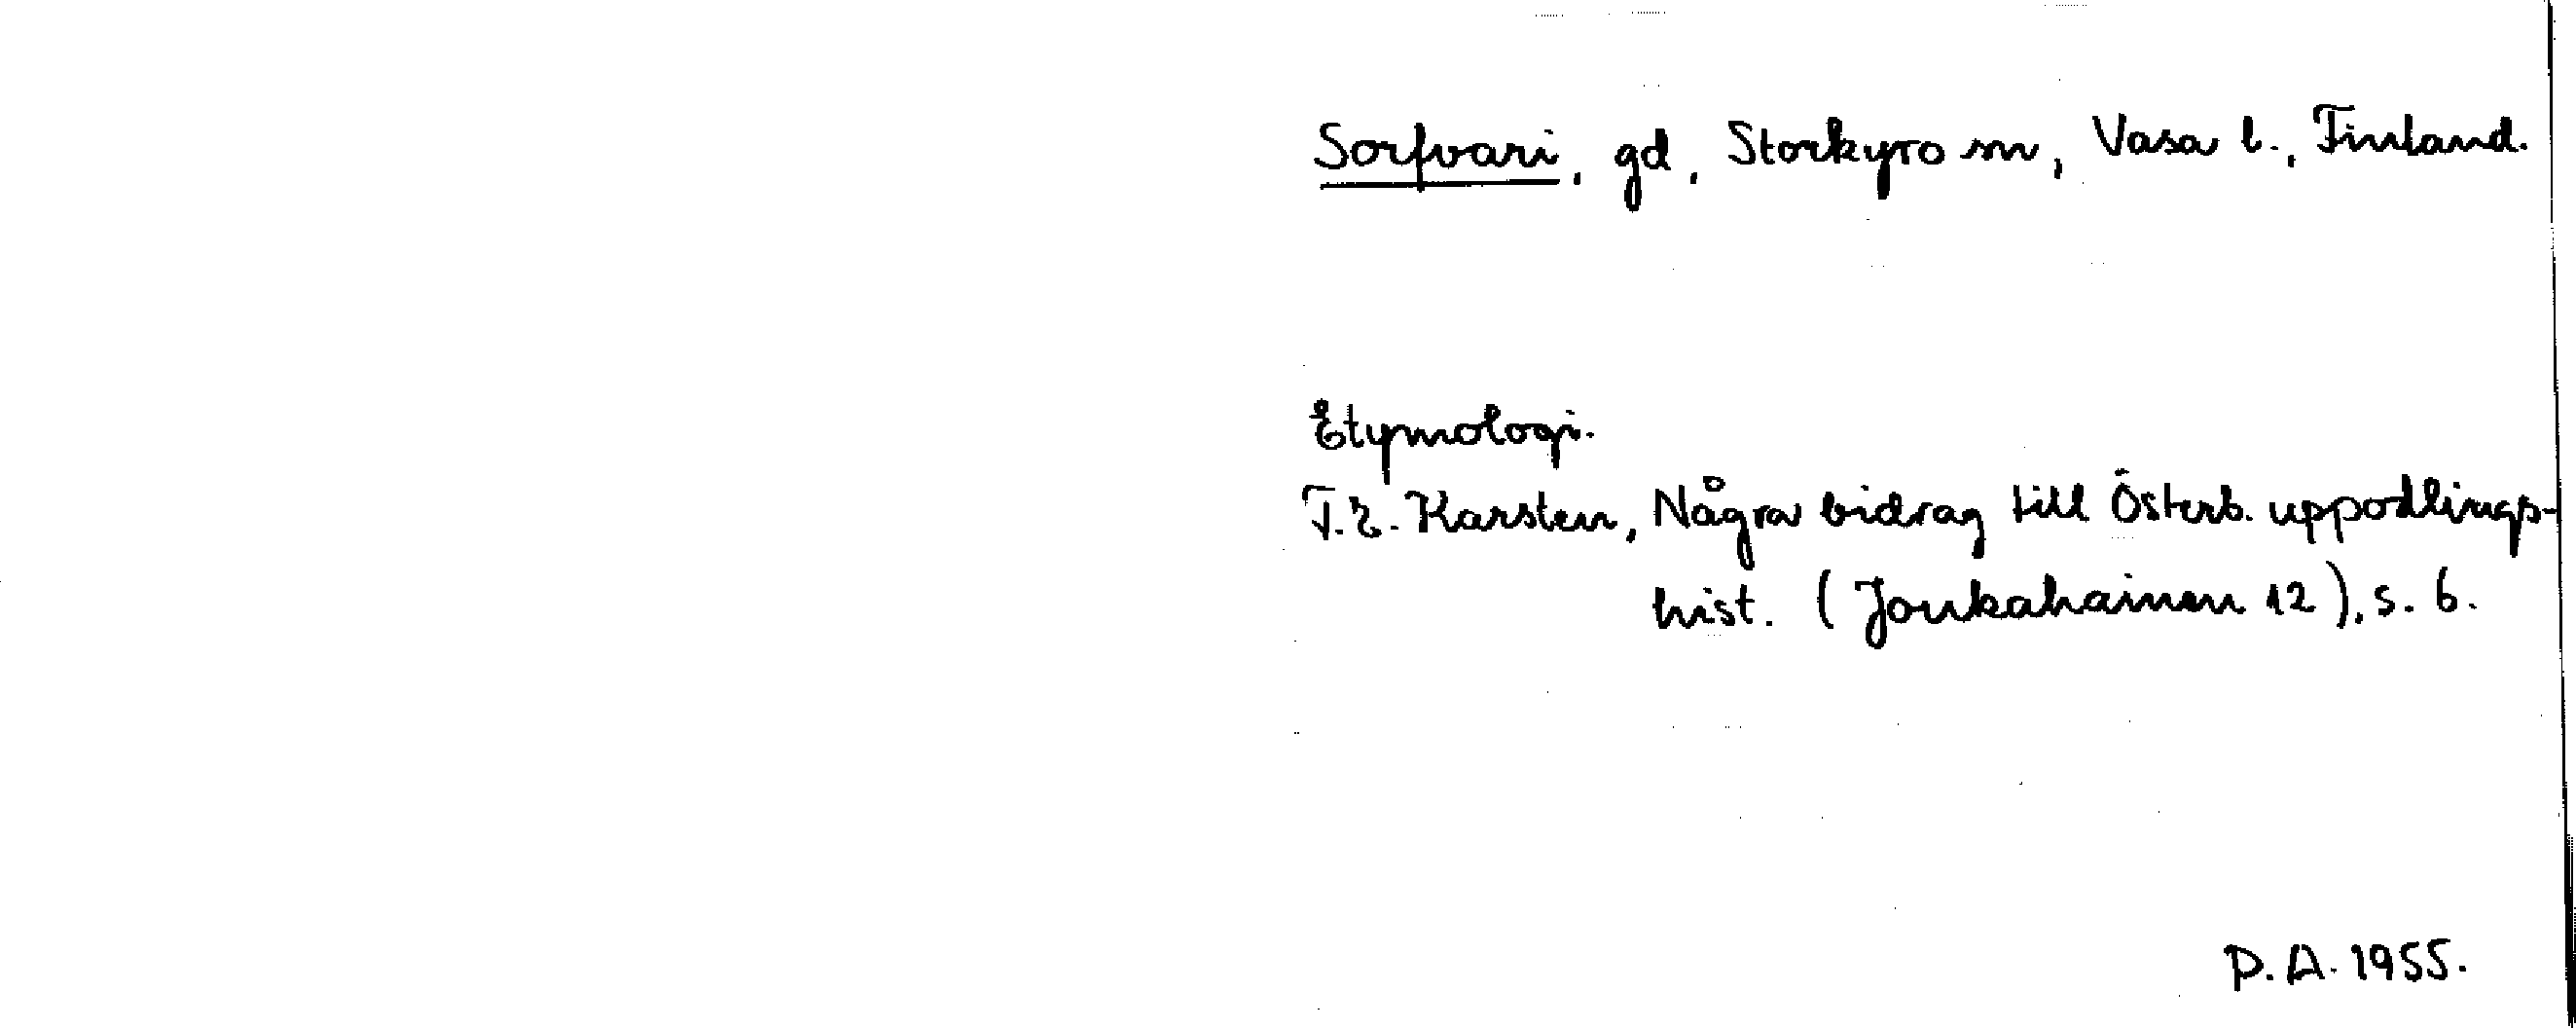 Sorfvari, gd, Storkyro sn, Vasa l., Finland.
Etymologi.
T.E. Karsten, Några bidrag till Österb. uppodlings-
hist. (Joukahainen 12), s. 6.
P.A. 1955.